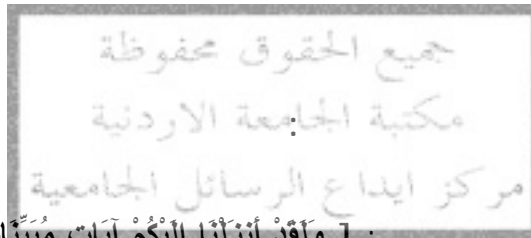 جميع الحقوق محفوظة
مكتبة الجامعة الاردنية
:
مركز ايداع الرسائل الجامعية
: [ وَلَقَدْ أَنزَلْنَا إِلَيْكُمْ آيَاتٍ مُبَيِّنَا